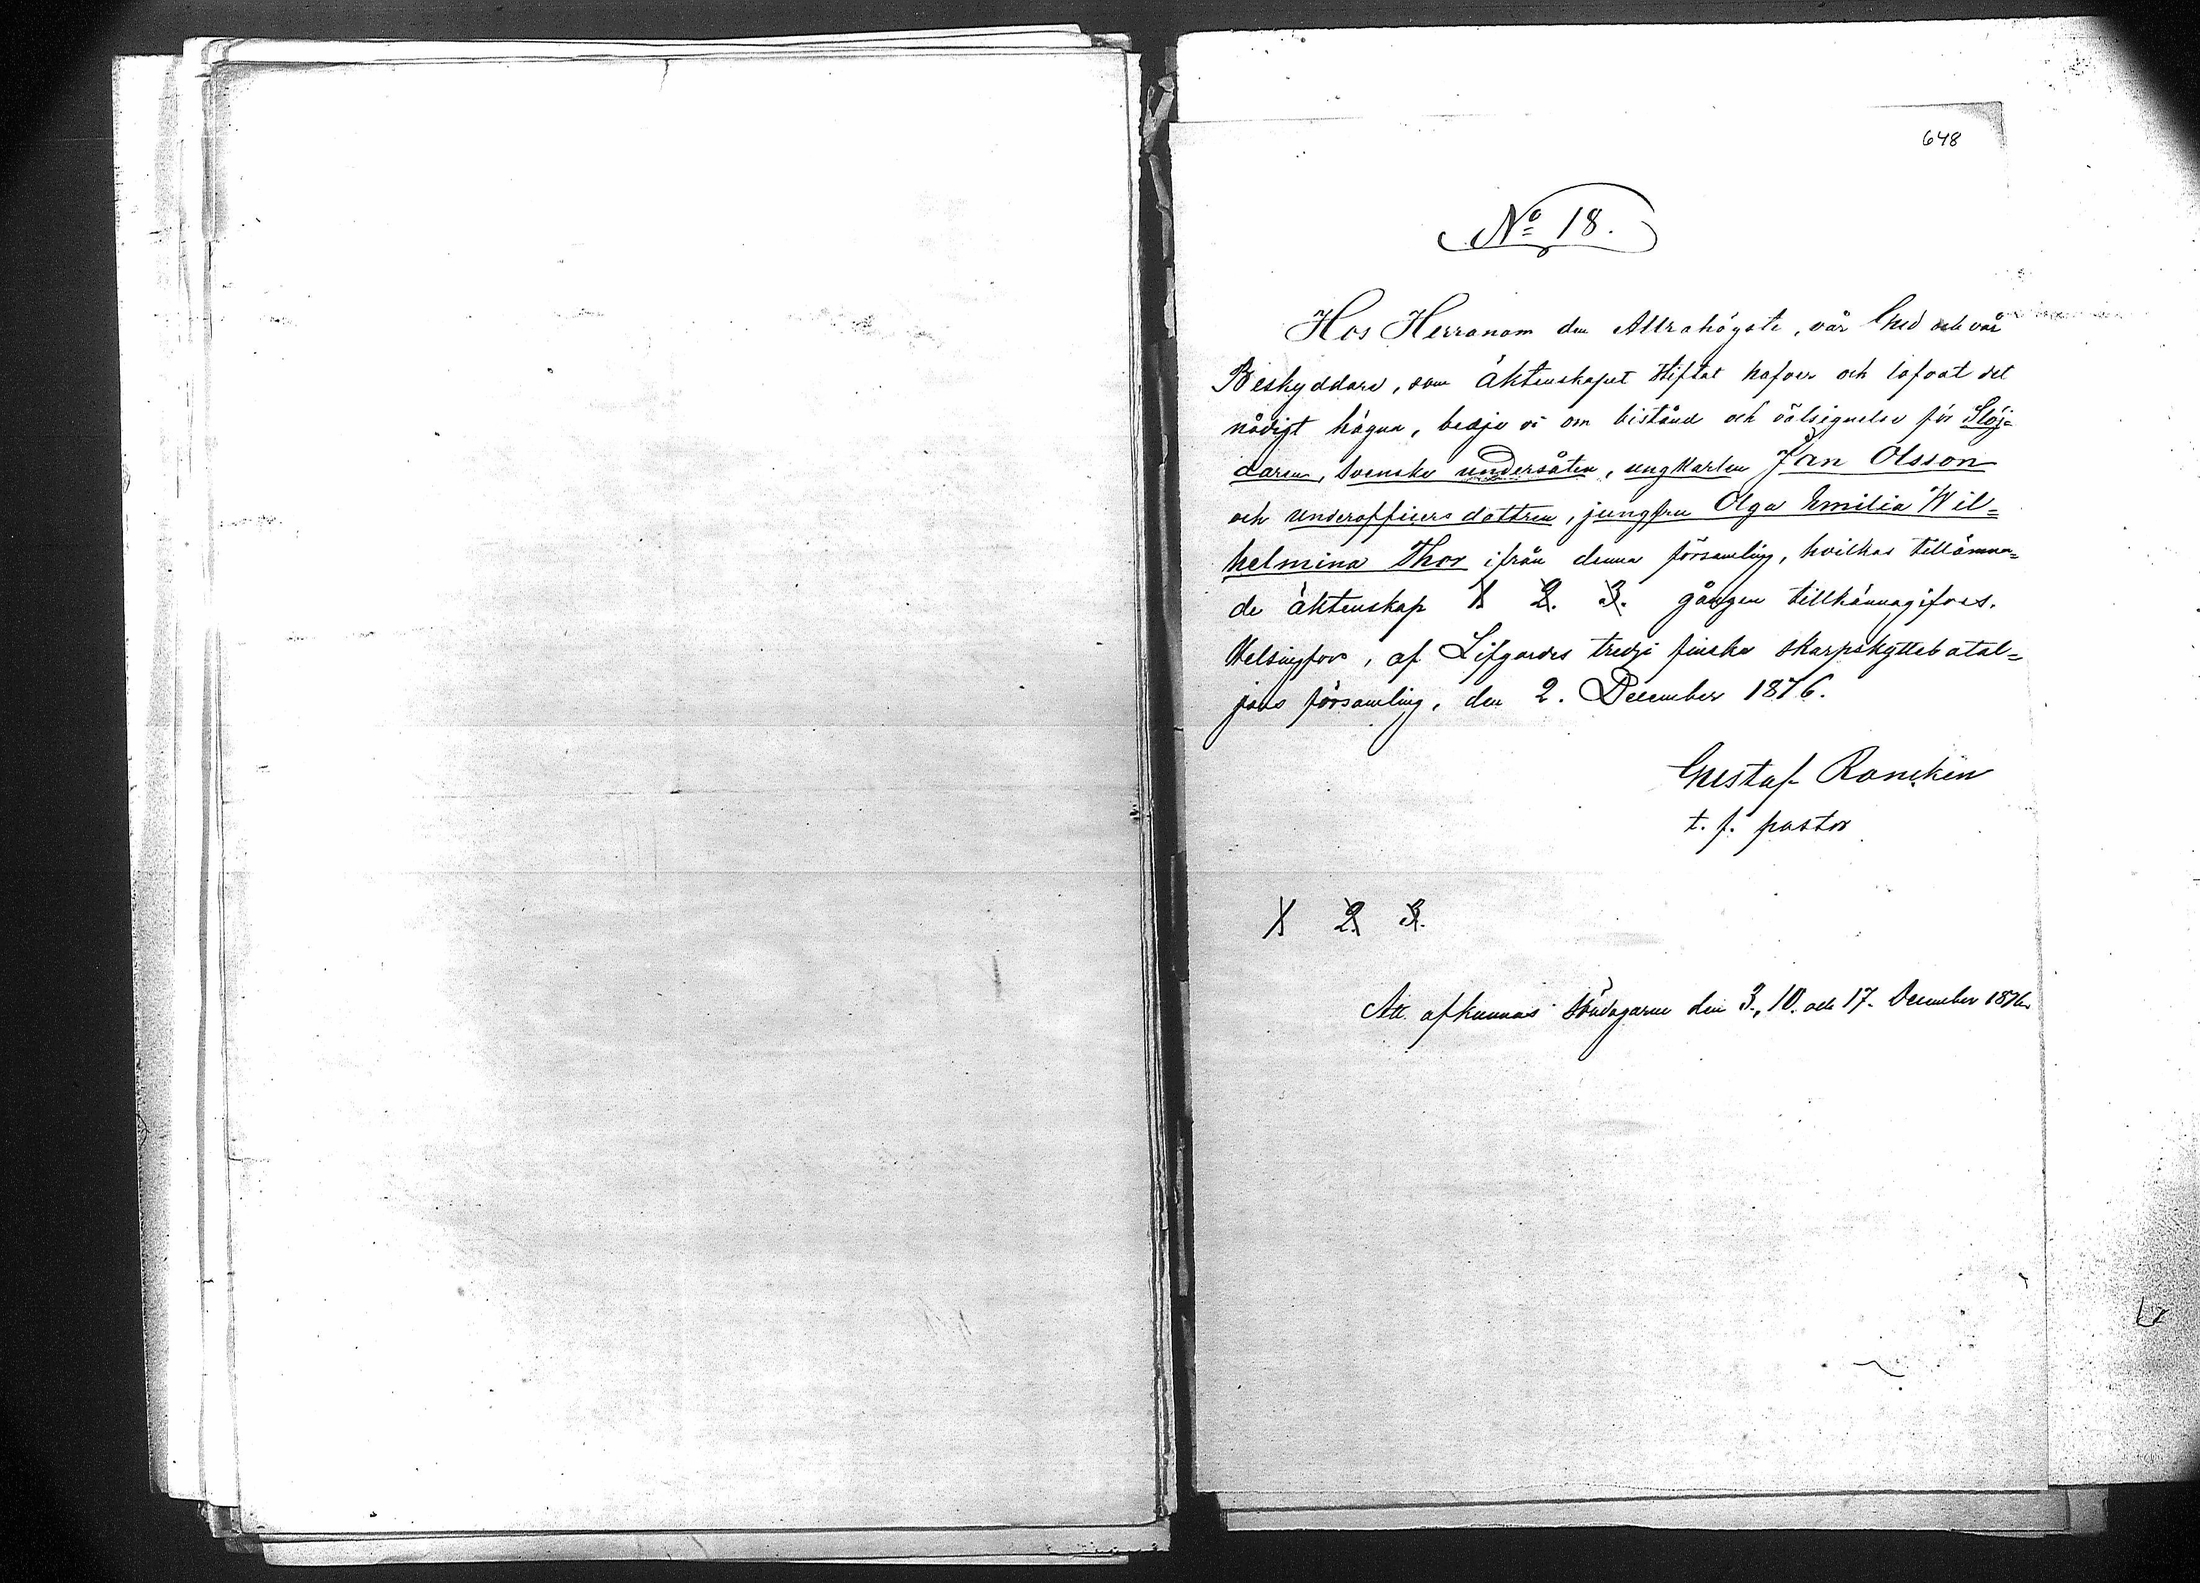 648
No 18.
Hos Herranom den Allrahögste, vår Gud och vår
Beskyddare, som äktenskapet stiftat hafver och lofvat det
nådigt hägna, bedje vi om bistånd och välsignelse för Slöj=
daren, Svenske undersåten, ungkarlen Jan Olsson
och underofficersdottren, jungfru Olga Emilia Wil=
helmina Thor ifrån denna församling, hvilkas tillämna=
de äktenskap 1 2. 3. gången tillkännagifves.
Helsingfors, af Lifgardes tredje finska skarpskyttebatal=
jons församling, den 2. December 1876.
Gustaf Rancken
t. f. pastor
1 2. 3.
Att afkunnas Söndagarne den 3., 10. och 17. December 1876.